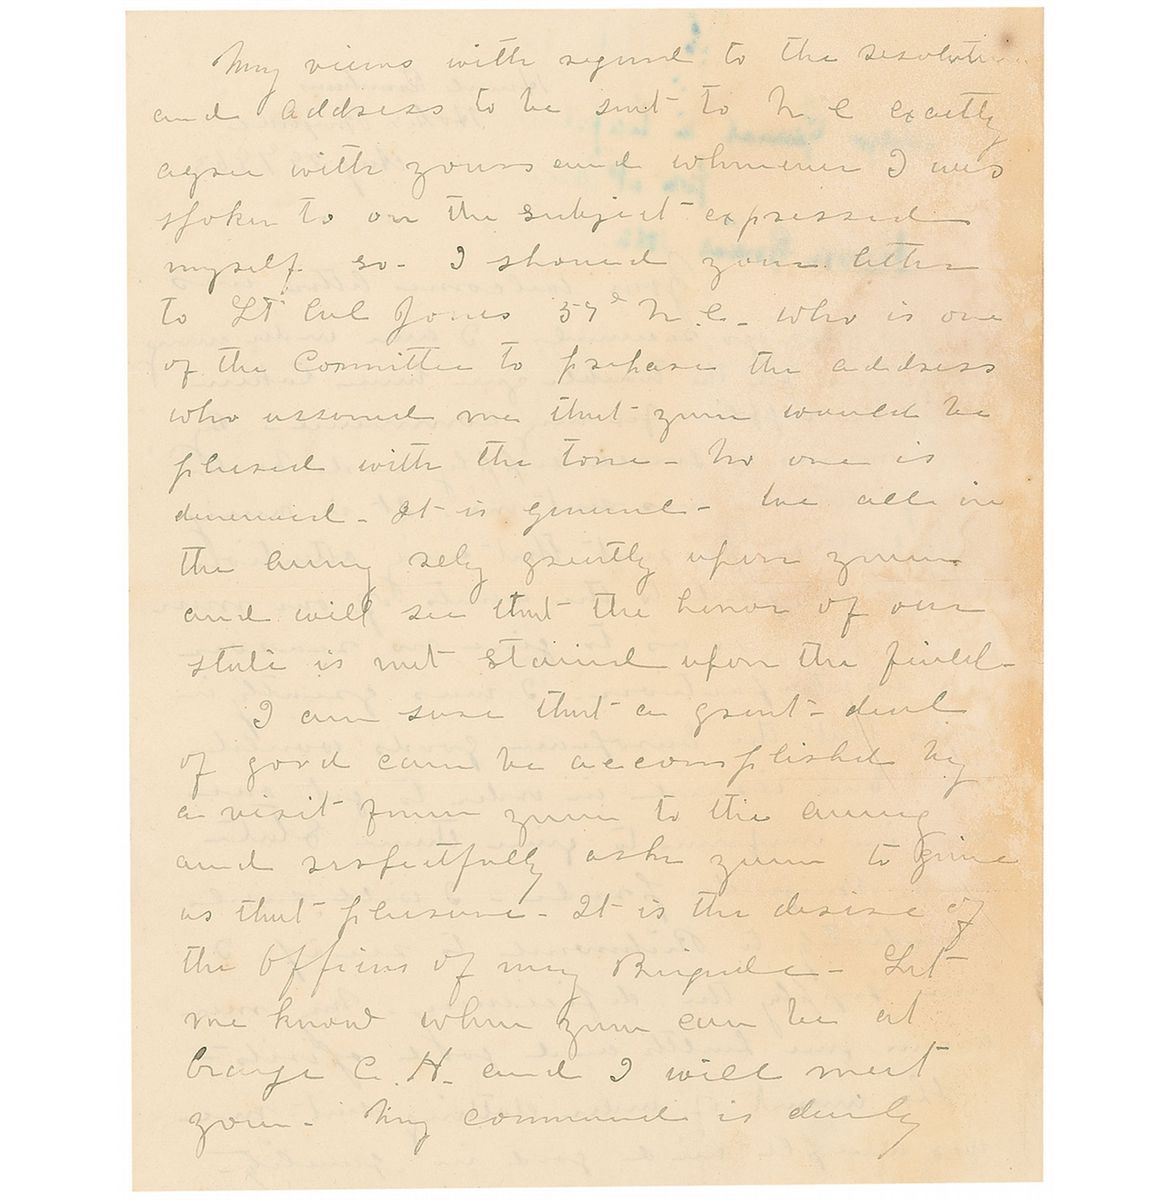 My views with regard to the resolution
and address to be sent to N C exactly
agree with yours and whenever I was
spoken to on the subject expressed
myself so - I showed your letter
to Lt Col Jones 57th N.C. - who is one
of the Committee to prepare the address
who assured me that you would be
pleased with the tone - No one is
It is general - We all in
the army rely greatly upon you
and will see that the honor of our
state is not stained upon the field -
I am sure that a great deal
of good can be accomplished by
a visit from you to the army
and respectfully ask you to give
us that pleasure - It is the desire of
the Officers of my Brigade - Let
me know when you can be at
Orange C. H. and I will meet
you - My command is daily